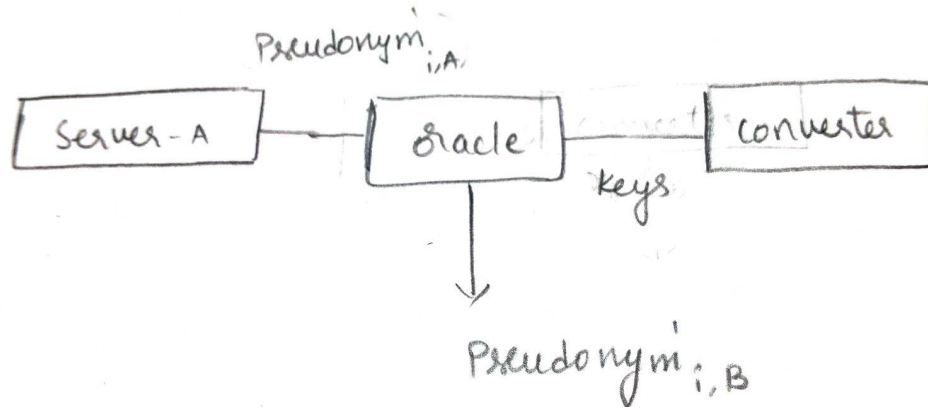 Pseudonym i,A
Server-A
oracle
converter
keys
Pseudonym i,B